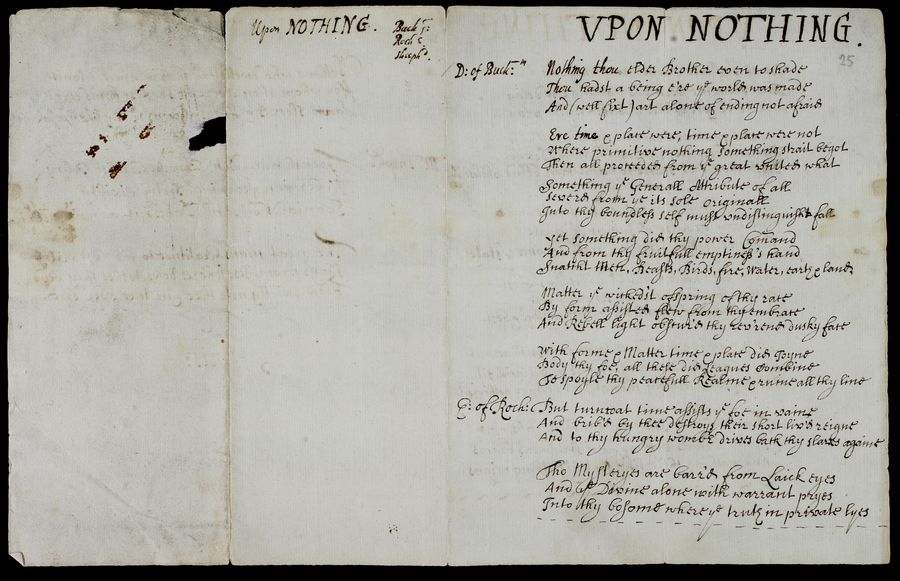 Upon NOTHING.
Buck
Roch
Sheeph
VPON NOTHING.
25
D: of Buck:m
Nothing thou elder Brother even to shade
Thou hadst a being e're ye world was made
And (well fixt) art alone of ending not afraid
Ere time & place were, time & place were not
Where primitive nothing something strait begot
Then all proceeded from ye great united what
Something ye Generall Attribute of all
Severd from ye its sole originall
Into thy boundless self must vndistinguisht fall
yet something did thy power Comand
And from thy fruitfull emptiness's hand
Snatcht Men, Beasts, Birds, fire, water, earth & land
Matter ye wickedst ofspring of thy race
By form assisted flew from thy embrace
And Rebell light obscur'd thy rev'rend dusky face
With forme & Matter time & place did Joyne
Body thy foe, all these did Leagues Combine
To spoyle thy peacefull Realme & ruine all thy line
E: of Roch:
But turncoat time assists ye foe in vaine
And brib'd by thee destroys their short liv'd reigne
And to thy hungry wombe drives back thy slaves againe
Tho Mysteryes are barr'd from Laick eyes
And ye Divine alone with warrant pryes
Into thy bosome where ye truth in private lyes